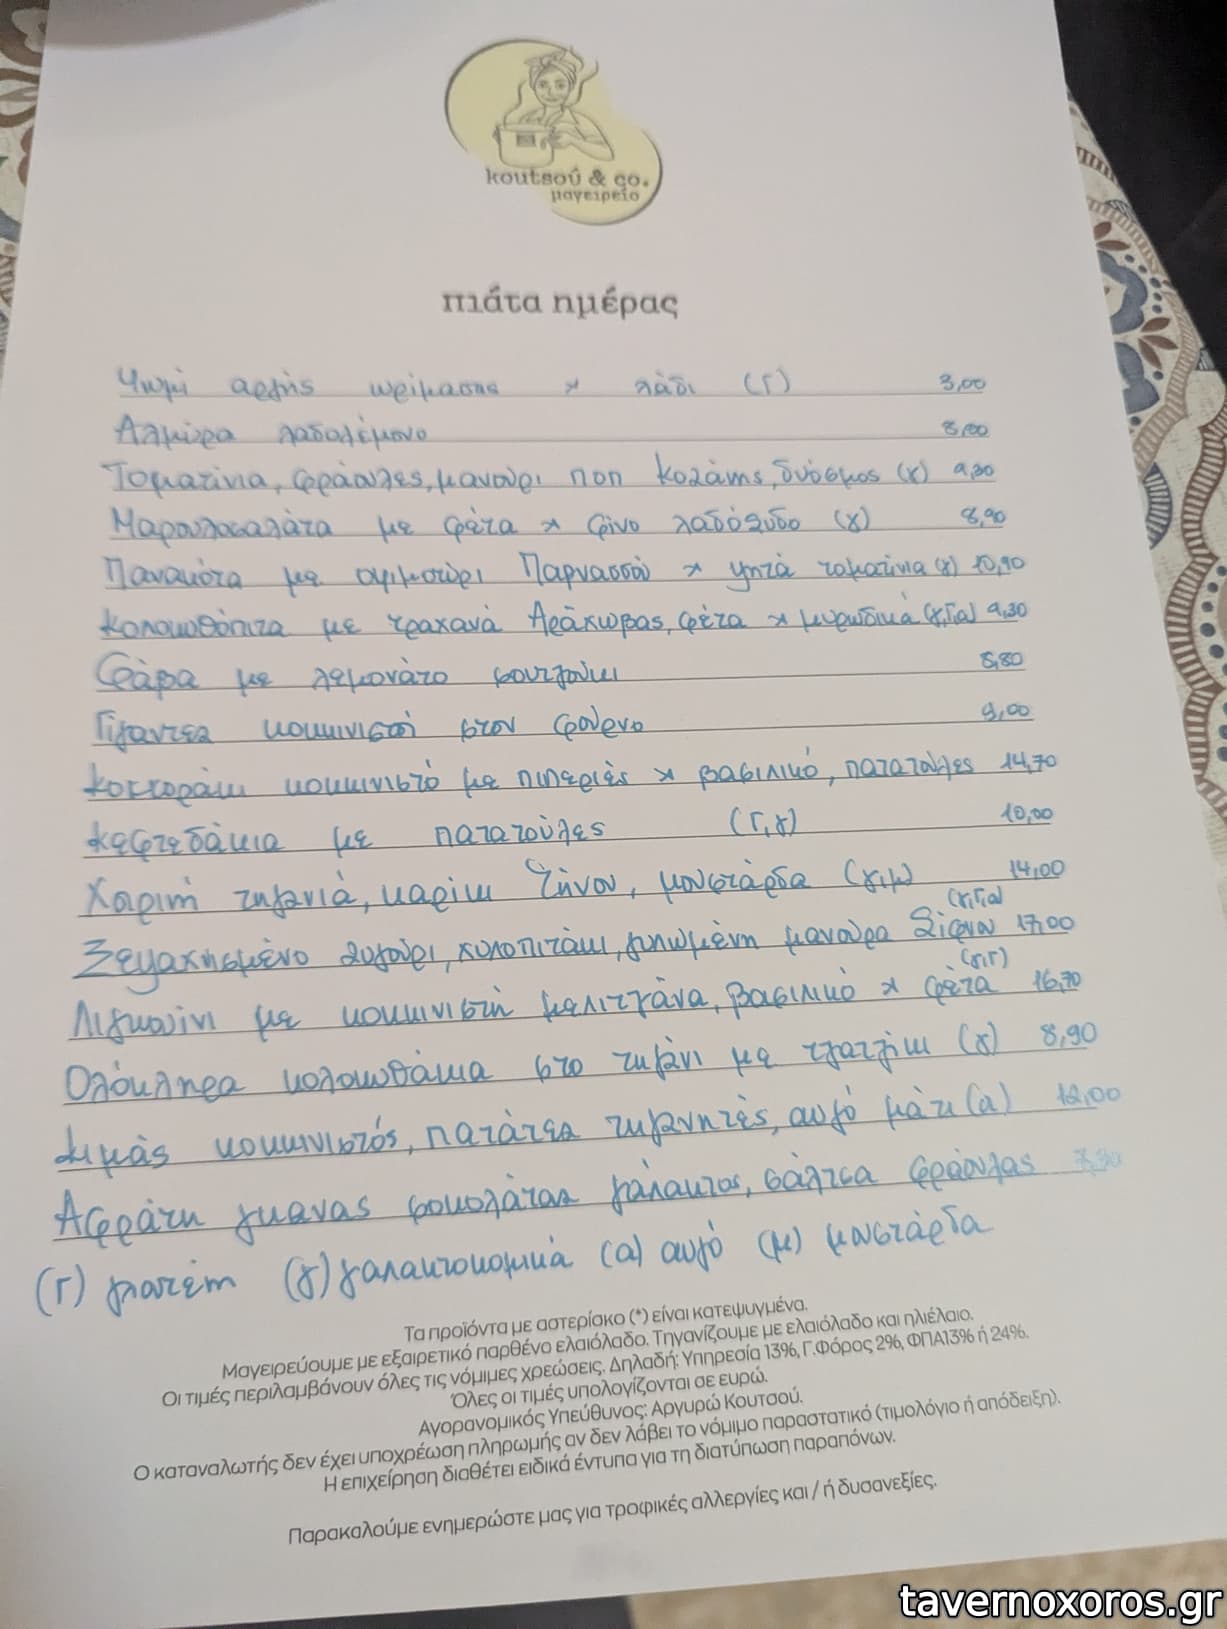 koutsoú & co.
μαγειρείο
πιάτα ημέρας
Ψωμί αργής ωρίμασης + λάδι (Γ) 3,00
Αλμύρα λαδολέμονο 8,00
Τοματίνια, φράουλες, μανούρι ΠΟΠ, δυόσμος (γ) 9,30
Μαρουλοσαλάτα με φέτα + φίνο λαδόξυδο (γ) 8,90
Πανακότα με αψιμοτύρι Παρνασσού + ψητά τοματίνια (γ) 10,90
Κολοκυθόπιτα με τραχανά Αράχωβας, φέτα + μυρωδικά (γ,Γ,α) 9,30
Φάβα με λεμονάτο 8,80
Γίγαντες κοκκινιστοί στον φούρνο 9,00
Κοκοράκι κοκκινιστό με πιπεριές + βασιλικό, πατατούλες 14,70
Κεφτεδάκια με πατατούλες (Γ,γ) 10,00
Χοιρινή τηγανιά, καρίκι Τήνου, μουστάρδα (γ,μ) 14,00
(γ,Γ,α)
Ξεψαχνισμένο ζυγούρι, χυλοπιτάκι, γυλωμένη μανούρα Σίφνου 17,00
(γ,Γ)
Λιγκουίνι με κοκκινιστή μελιτζάνα, βασιλικό + φέτα 16,70
Ολόκληρα κολοκυθάκια στο τηγάνι με τζατζίκι (γ) 8,90
Κιμάς κοκκινιστός, πατάτες τηγανητές, αυγό μάτι (α) 12,00
Αφράτη γκανάς σοκολάτας γάλακτος, σάλτσα φράουλας 7,30
(Γ) γλουτένη (γ) γαλακτοκομικά (α) αυγό (μ) μουστάρδα
Τα προϊόντα με αστερίσκο (*) είναι κατεψυγμένα.
Μαγειρεύουμε με εξαιρετικό παρθένο ελαιόλαδο. Τηγανίζουμε με ελαιόλαδο και ηλιέλαιο.
Οι τιμές περιλαμβάνουν όλες τις νόμιμες χρεώσεις. Δηλαδή: Υπηρεσία 13%, Γ.Φόρος 2%, ΦΠΑ13% ή 24%.
Όλες οι τιμές υπολογίζονται σε ευρώ.
Αγορανομικός Υπεύθυνος: Αργυρώ Κουτσού.
Ο καταναλωτής δεν έχει υποχρέωση πληρωμής αν δεν λάβει το νόμιμο παραστατικό (τιμολόγιο ή απόδειξη).
Η επιχείρηση διαθέτει ειδικά έντυπα για τη διατύπωση παραπόνων.
Παρακαλούμε ενημερώστε μας για τροφικές αλλεργίες και / ή δυσανεξίες.
tavernoxoros.gr